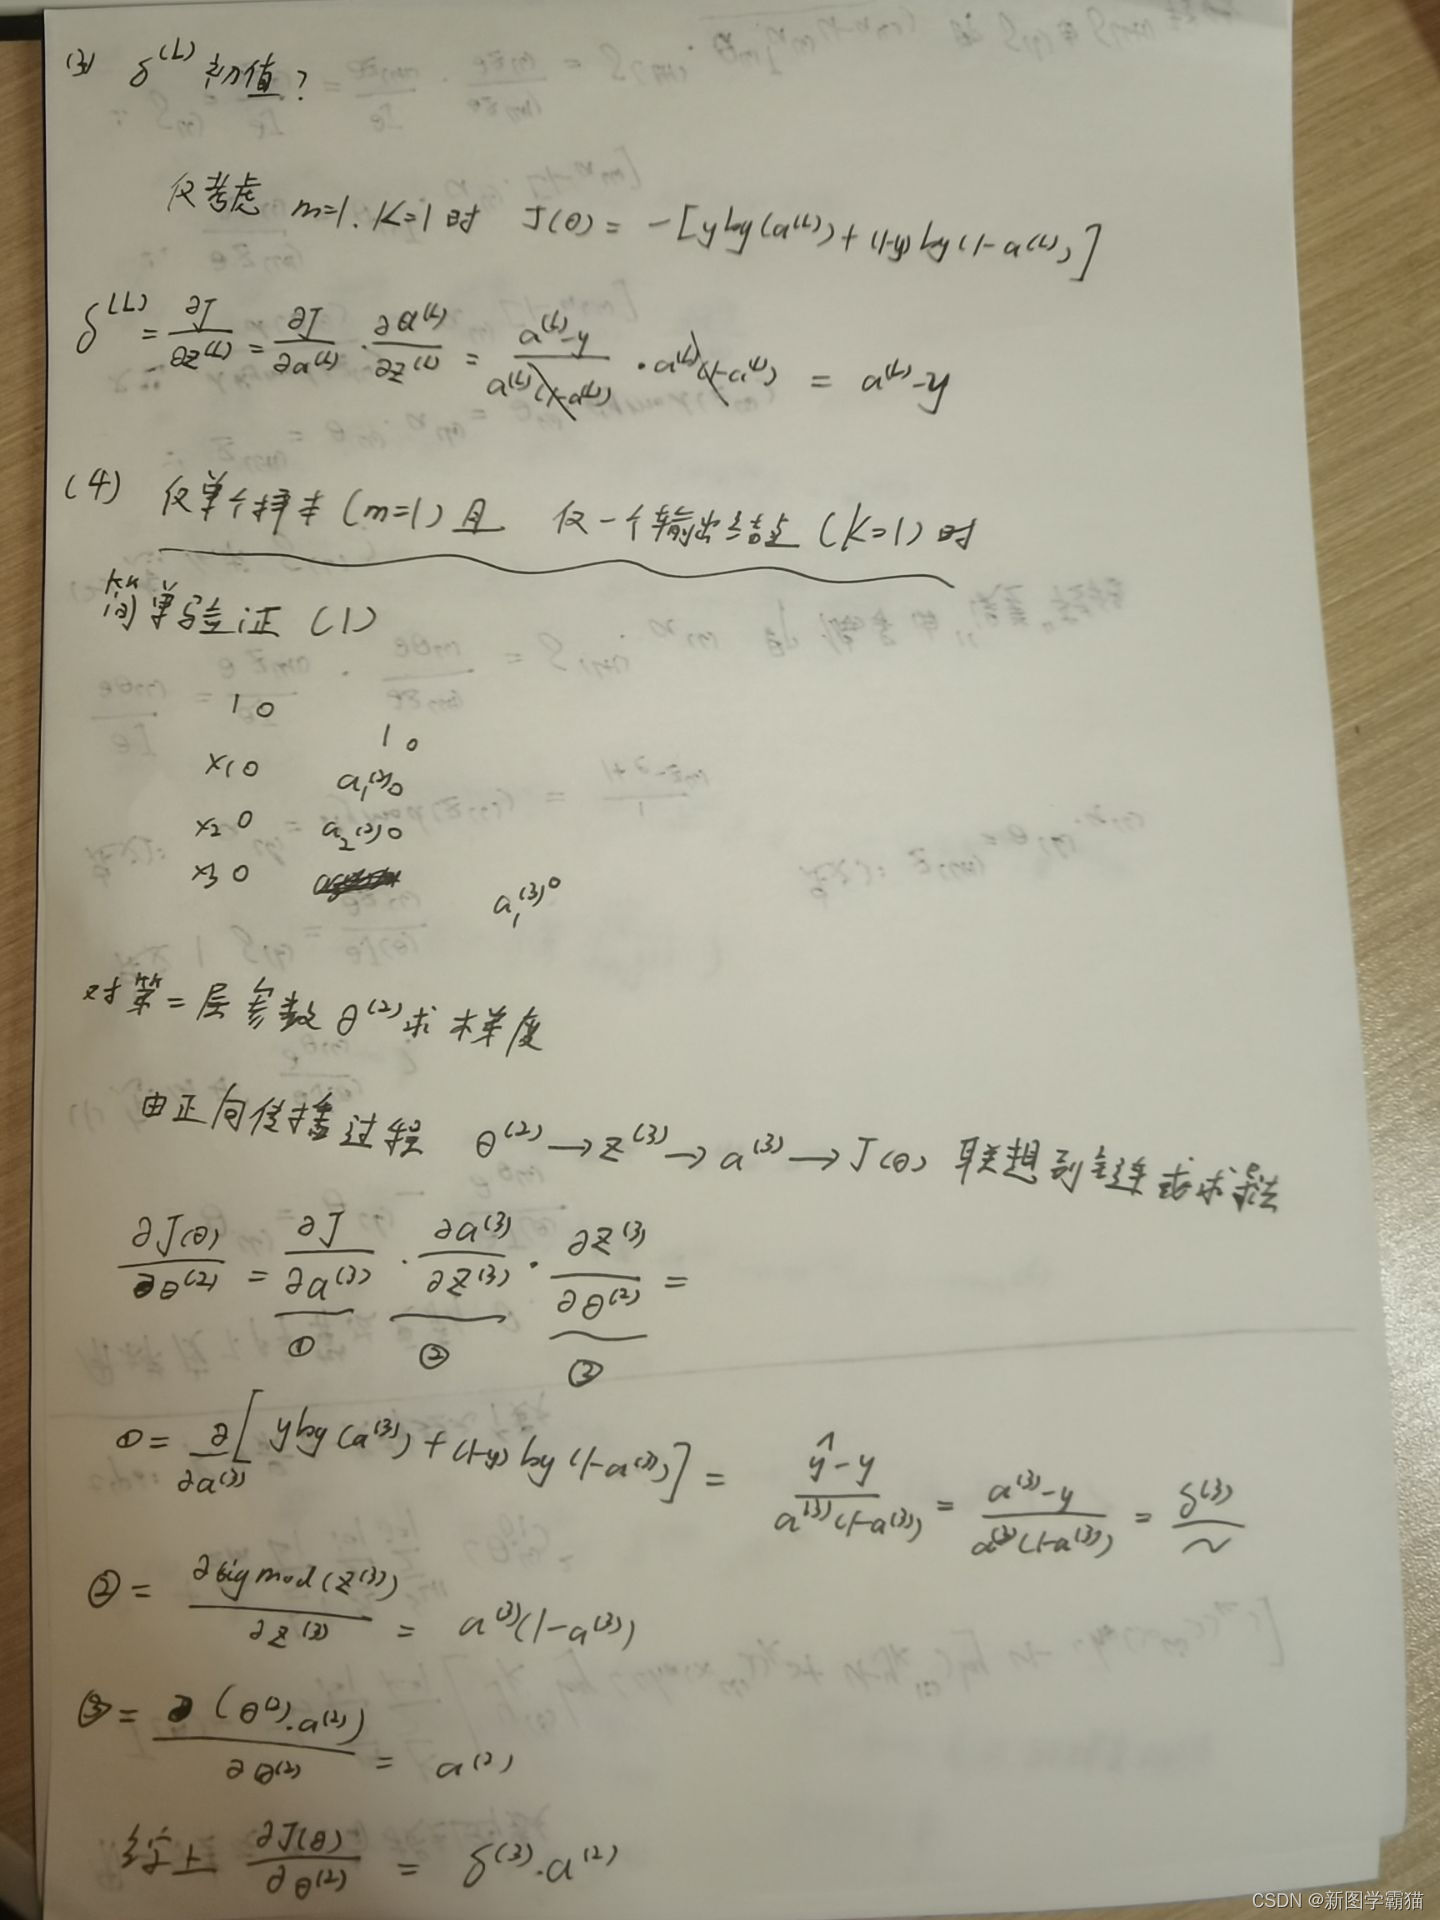 (3) δ^(L) 初值？
仅考虑 m=1. K=1 时 J(θ) = -[y log(a^(L)) + (1-y) log(1-a^(L))]
δ^(L) = ∂J/∂z^(L) = ∂J/∂a^(L) · ∂a^(L)/∂z^(L) = (a^(L)-y)/(a^(L)(1-a^(L))) · a^(L)(1-a^(L)) = a^(L)-y
(4) 仅单个样本(m=1)且 仅一个输出结点(K=1)时
简单验证(1)
1 o
1 o
x1 o a₁^(2) o
x2 o a₂^(2) o
x3 o
a₁^(3) o
对第二层参数 θ^(2) 求梯度
由正向传播过程 θ^(2) → z^(3) → a^(3) → J(θ) 联想到链式求导法
∂J(θ)/∂θ^(2) = ∂J/∂a^(3) · ∂a^(3)/∂z^(3) · ∂z^(3)/∂θ^(2) =
① ② ③
① = ∂/∂a^(3) [y log(a^(3)) + (1-y) log(1-a^(3))] = (ŷ-y)/(a^(3)(1-a^(3))) = (a^(3)-y)/(a^(3)(1-a^(3))) = δ^(3)/~
② = ∂sigmod(z^(3))/∂z^(3) = a^(3)(1-a^(3))
③ = ∂(θ^(2)·a^(2))/∂θ^(2) = a^(2)
综上 ∂J(θ)/∂θ^(2) = δ^(3)·a^(2)
CSDN @新图学霸猫